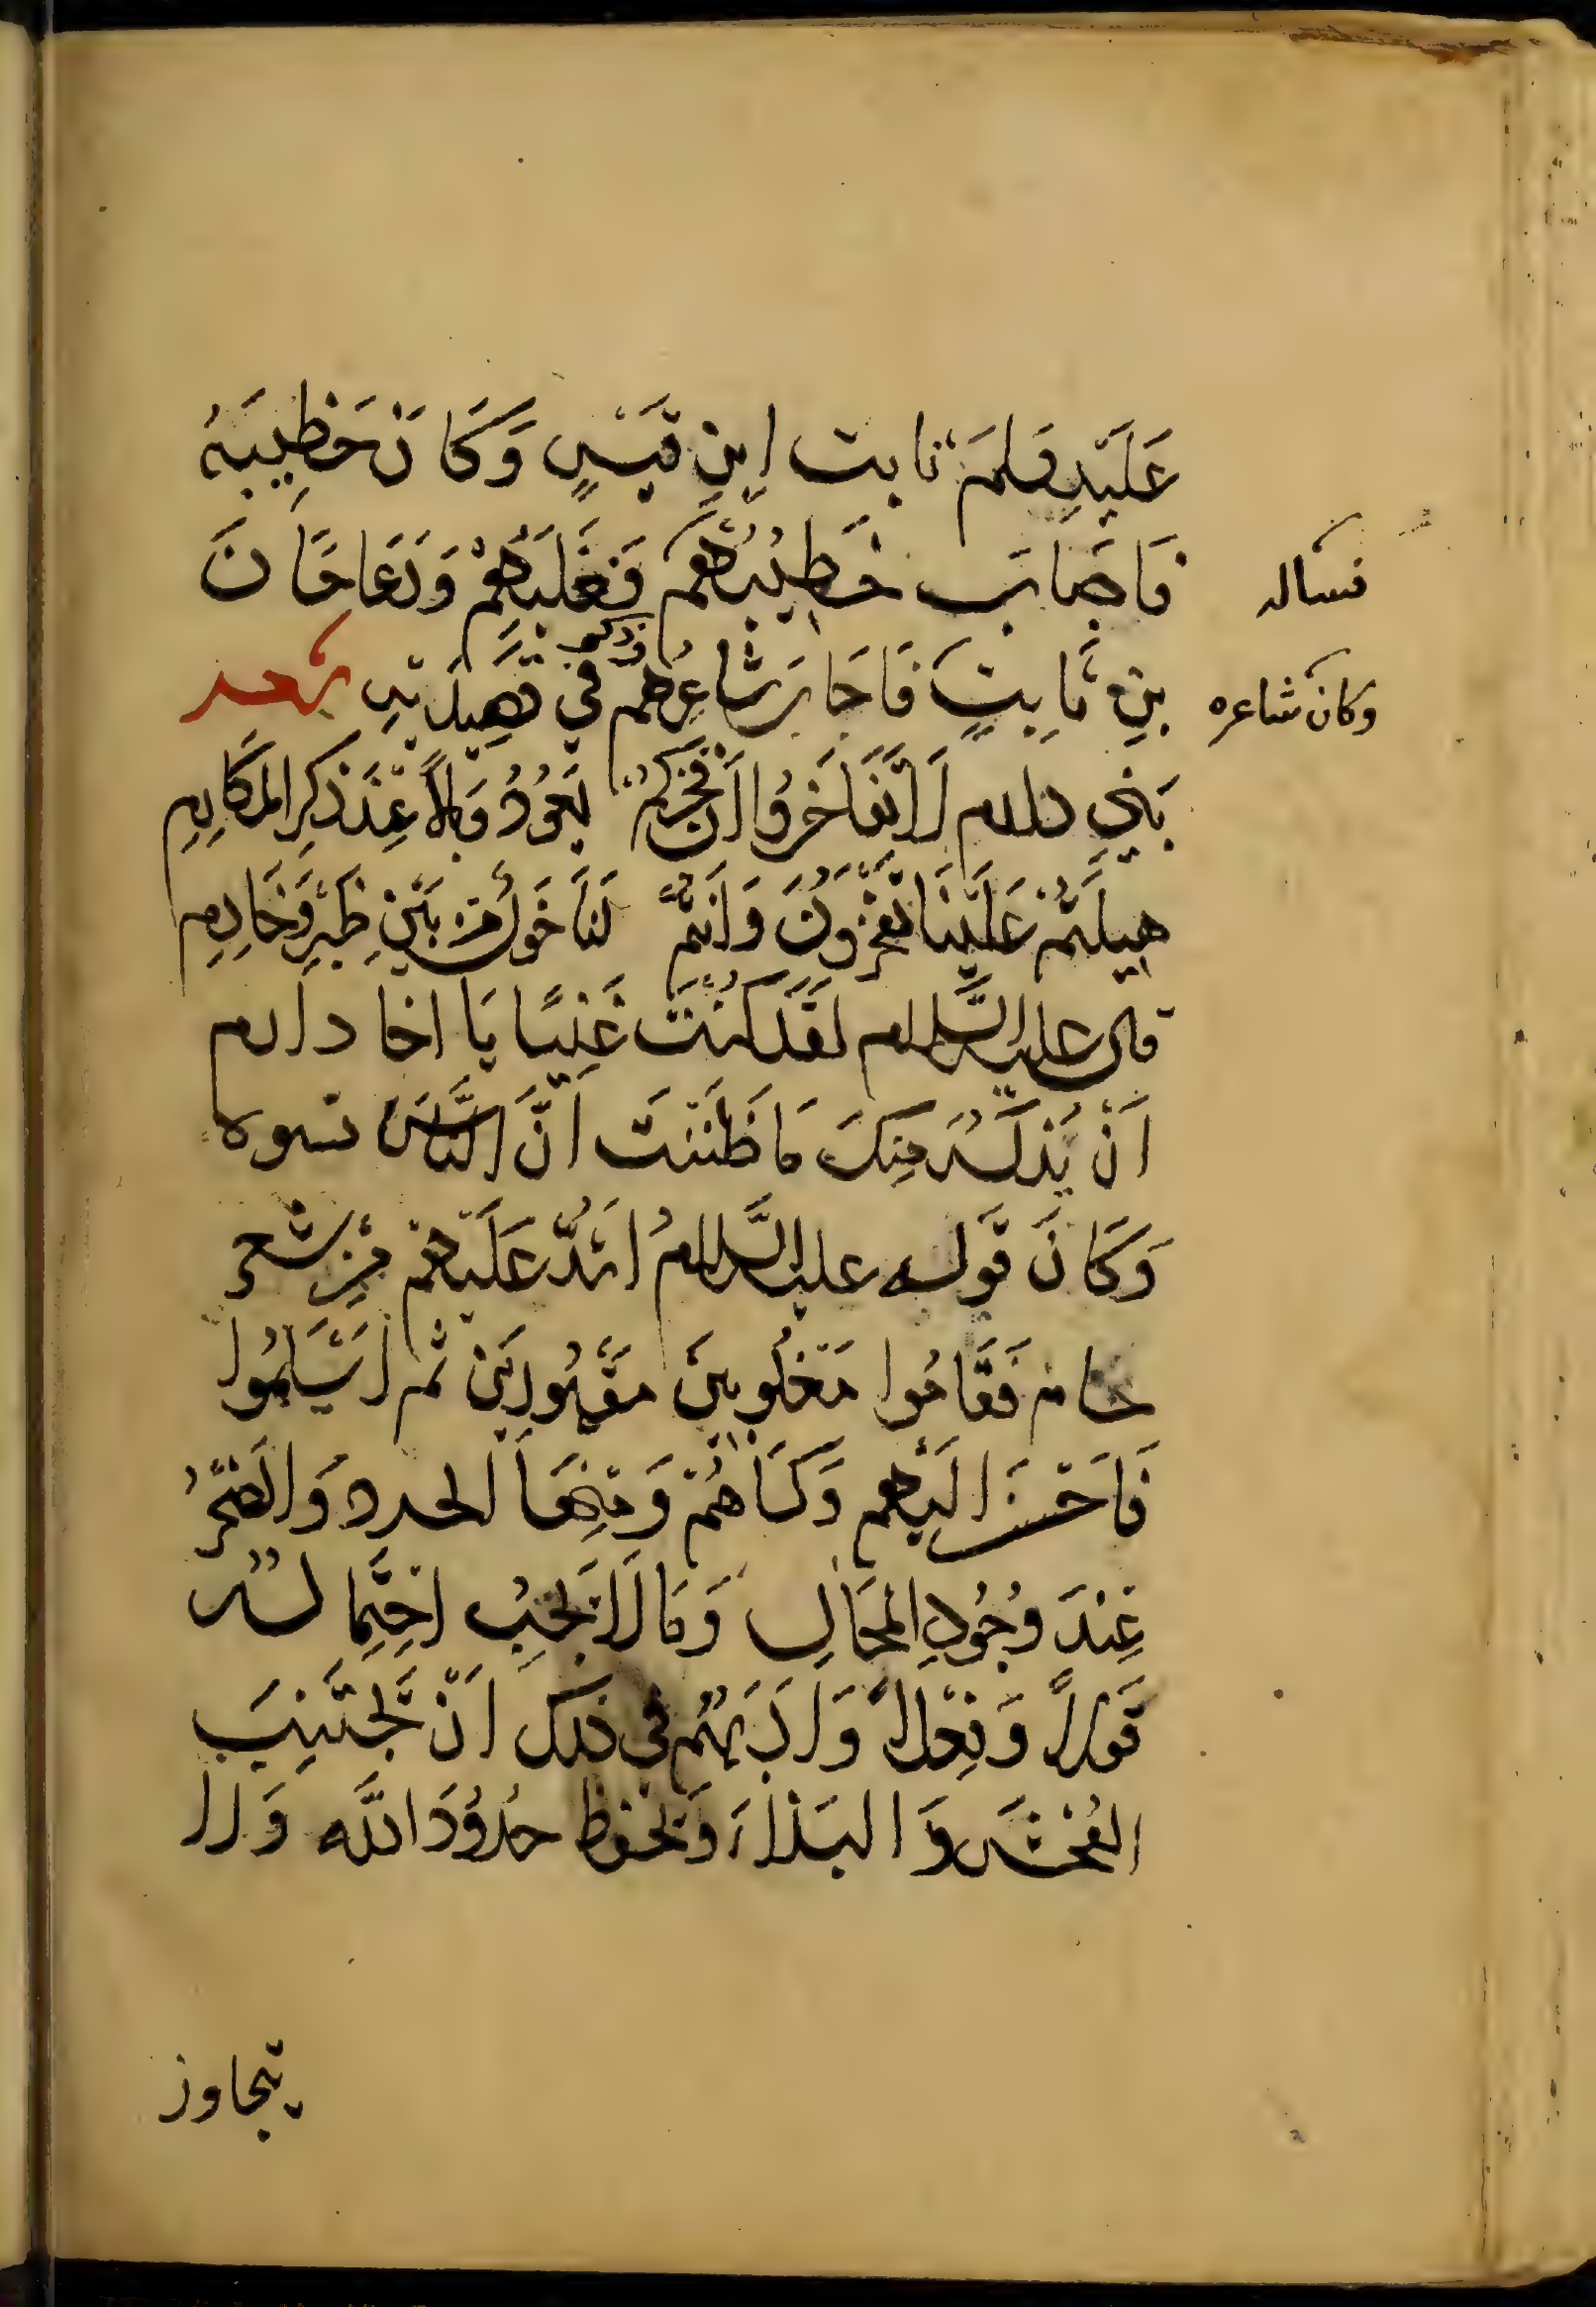 عَلَيْهِ فَلَمَّ ثابت ابنِ قَيْسٍ وَكَانَ خَطِيبَهُ
فَاجَابَ خَطِيْبُهُمْ فَغَلَبَهُمْ وَدَعَا حَسَّانَ
فسأله
بنِ ثابِتٍ فَاجَابَ شاعِرهُم فِي قَصِيْدَتِهِ شعر
وكان شاعره
بَنِي دارم لَا تَفَاخَرُوا اَنَّ فَخْرَكُمْ يَعُوْدُ وَبالاً عِنْدَ ذِكْرِ المَكَارِمِ
هبِلْتُمْ عَلَيْنَا تَفْخَرُونَ وَاَنْتُمُ لَنَا خَوَلٌ مِنْ بَيْنِ ظِئْرٍ وَخَادِمِ
قال عليه السَّلام لَقَدْ كُنْتَ غَنِيًا يَا اخا دارم
اَنْ يُذْكَرَ مِنْكَ مَا ظَنَنْتَ اَنَّ النَّاسَ نسوه
وَكَانَ قَوله عليه السَّلامُ اشَدُّ عَلَيْهِمْ مِنْ شعر
حسان فَقَامُوا مَغْلُوبِيْنَ مَقْهُورِيْنَ ثم اَسْلَمُوا
فَاَحْسَنَ اِلَيْهِم وَكَسَاهُمْ وَمِنْهَا الحرد وَالضَّجَرُ
عِنْدَ وُجُودِ المُحَالِ وَمَا لَا يَجِبُ احْتِمَالُهُ
قَوْلاً وَفِعْلاً وَادَبُهُمْ فِي ذلك اَنْ يَجْتَنِبَ
الفُحْشَ وَالبَذاءَ وَيحفظ حُدُوْدَ اللَّه وَلا
يتجاوز